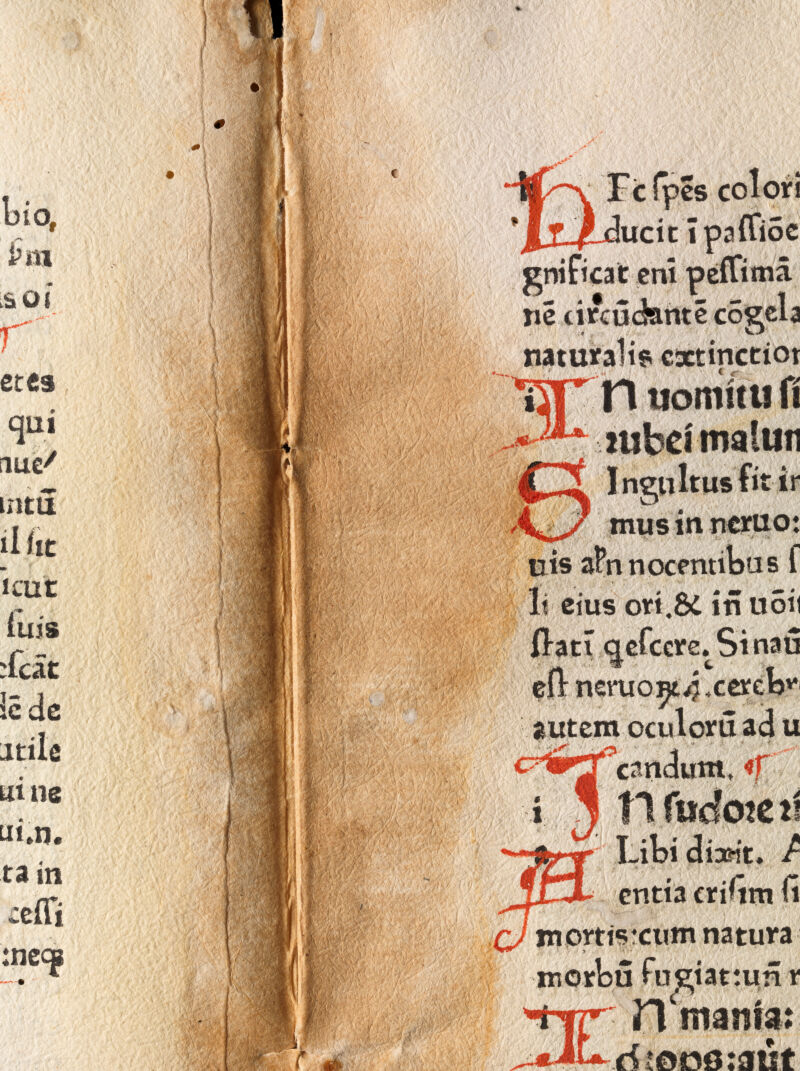 bio,
ꝑm
is oi
etes
qui
nue/
untū
il ſit
icut
ſuis
eſcāt
dē de
utile
ui ne
ui.n.
ta in
ceſſi
:neqꝫ
H Ec ſpēs colori
ducit ī paſſiōe
gnificat enī peſſimā
nē circūdantē cōgela
naturalis extinction
I N uomitu ſi
rubei malum
S Ingultus fit in
mus in neruo:
uis aꝑn nocentibus ſ
li eius ori.& iñ uōit
ſtatī qeſcere. Si naū
eſt neruoꝝ.cerebr
autem oculorū ad u
candum. ¶
I N ſudore ri
A Libi dixit. A
entia criſim ſi
mortis:cum natura
morbū fugiat:uñ r
I N mania: